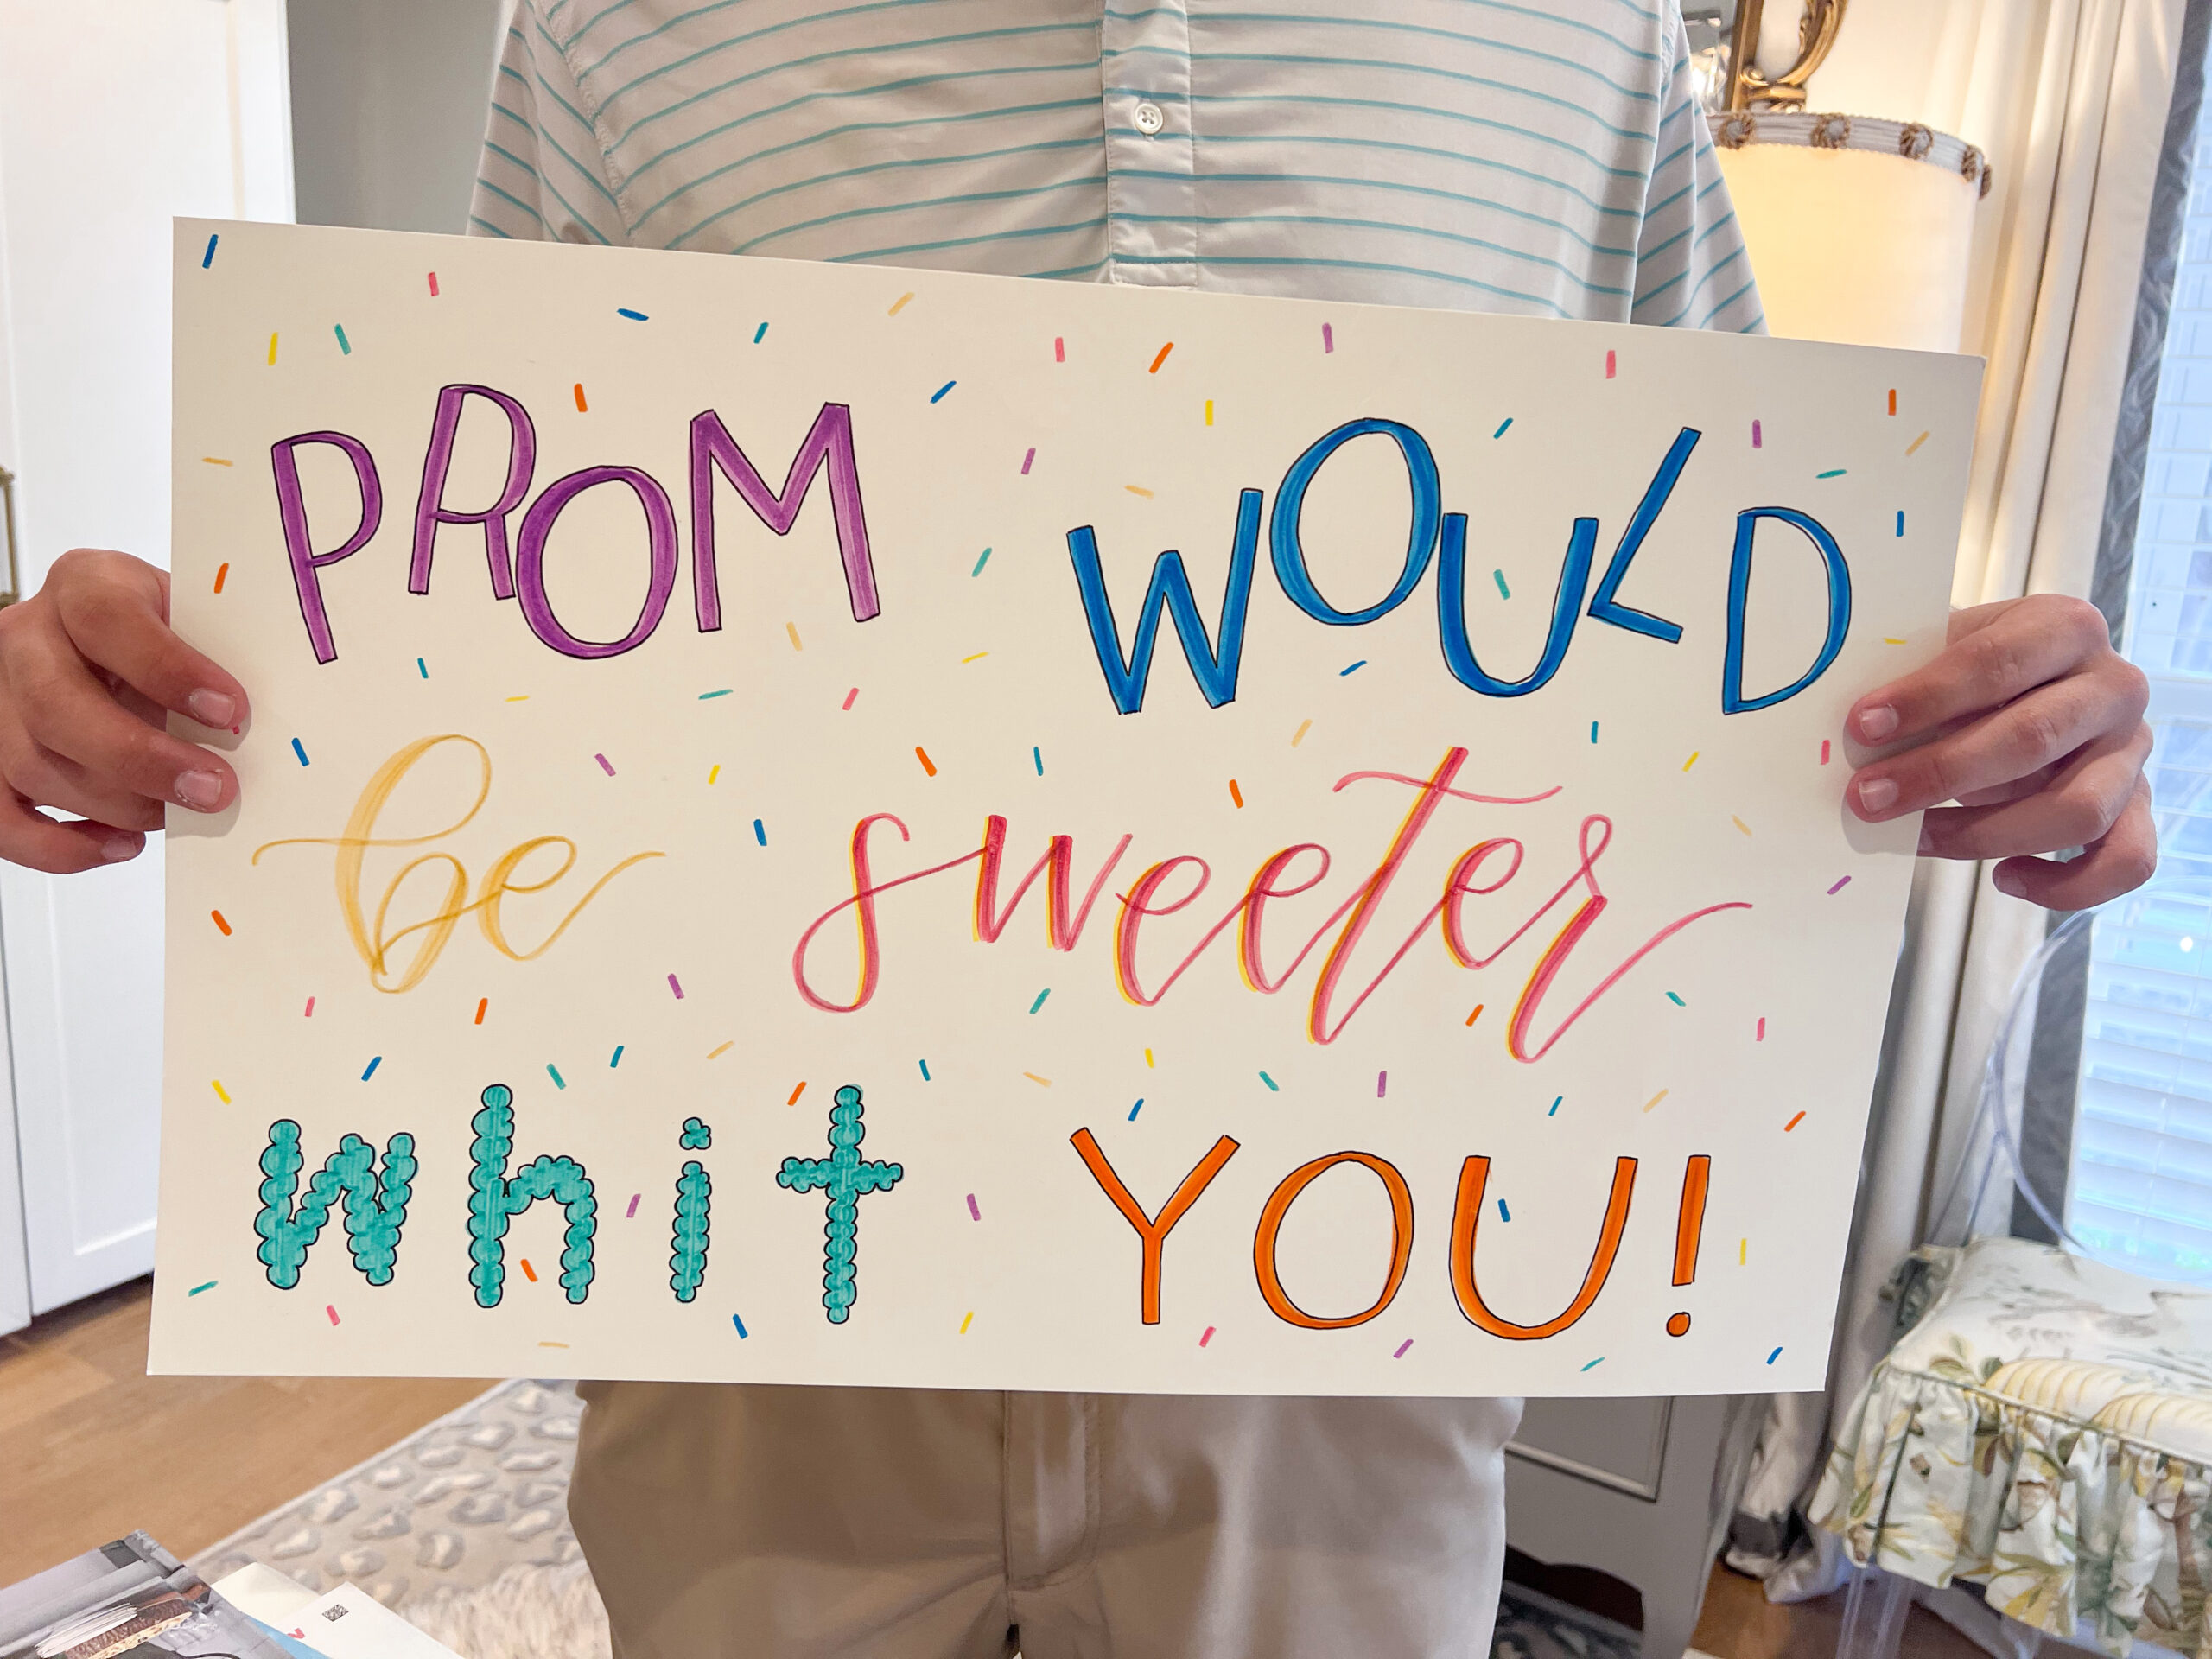 PROM WOULD
be sweeter
whit YOU!